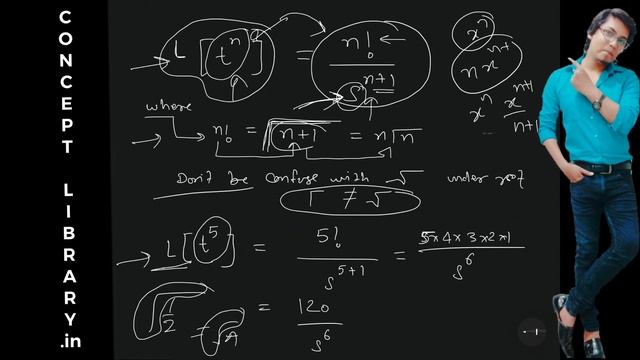 CONCEPT LIBRARY.in
L[tⁿ] = n! / sⁿ⁺¹
xⁿ
n xⁿ⁺¹
xⁿ xⁿ⁺¹ / n+1
where
n! = Γn+1 = nΓn
Don't be confuse with √ under root
Γ ≠ √
L[t⁵] = 5! / s⁵⁺¹ = 5x4x3x2x1 / s⁶
= 120 / s⁶